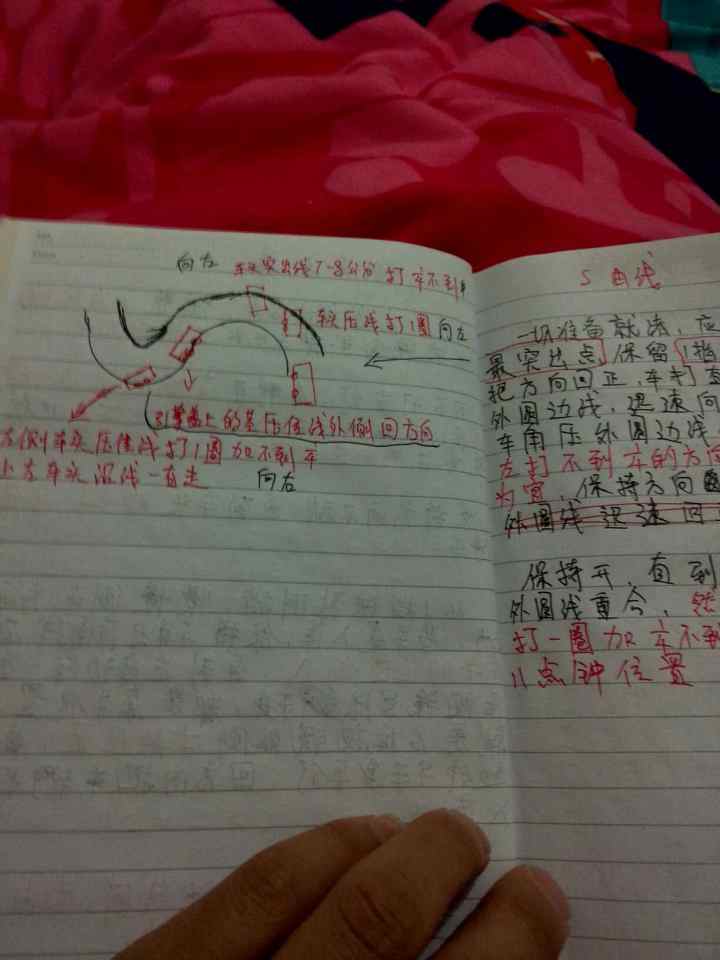 向左 车头突出线7-8公分 打 车不到
车头压线打1圈 向左
引擎盖上的基压住线外侧回方向
左侧车头压住线打1圈加 不到
车头沿线一直走 向右
S曲线
一切准备就
最突出点 保留 1指
把方向回正,车打
外圆边线,迅速向
车角压外圆边线
左打不到 的方向
为宜,保持方向
外圆线迅速回
保持开,直到
外圆线重合,
打一圈加 不到
11点钟位置